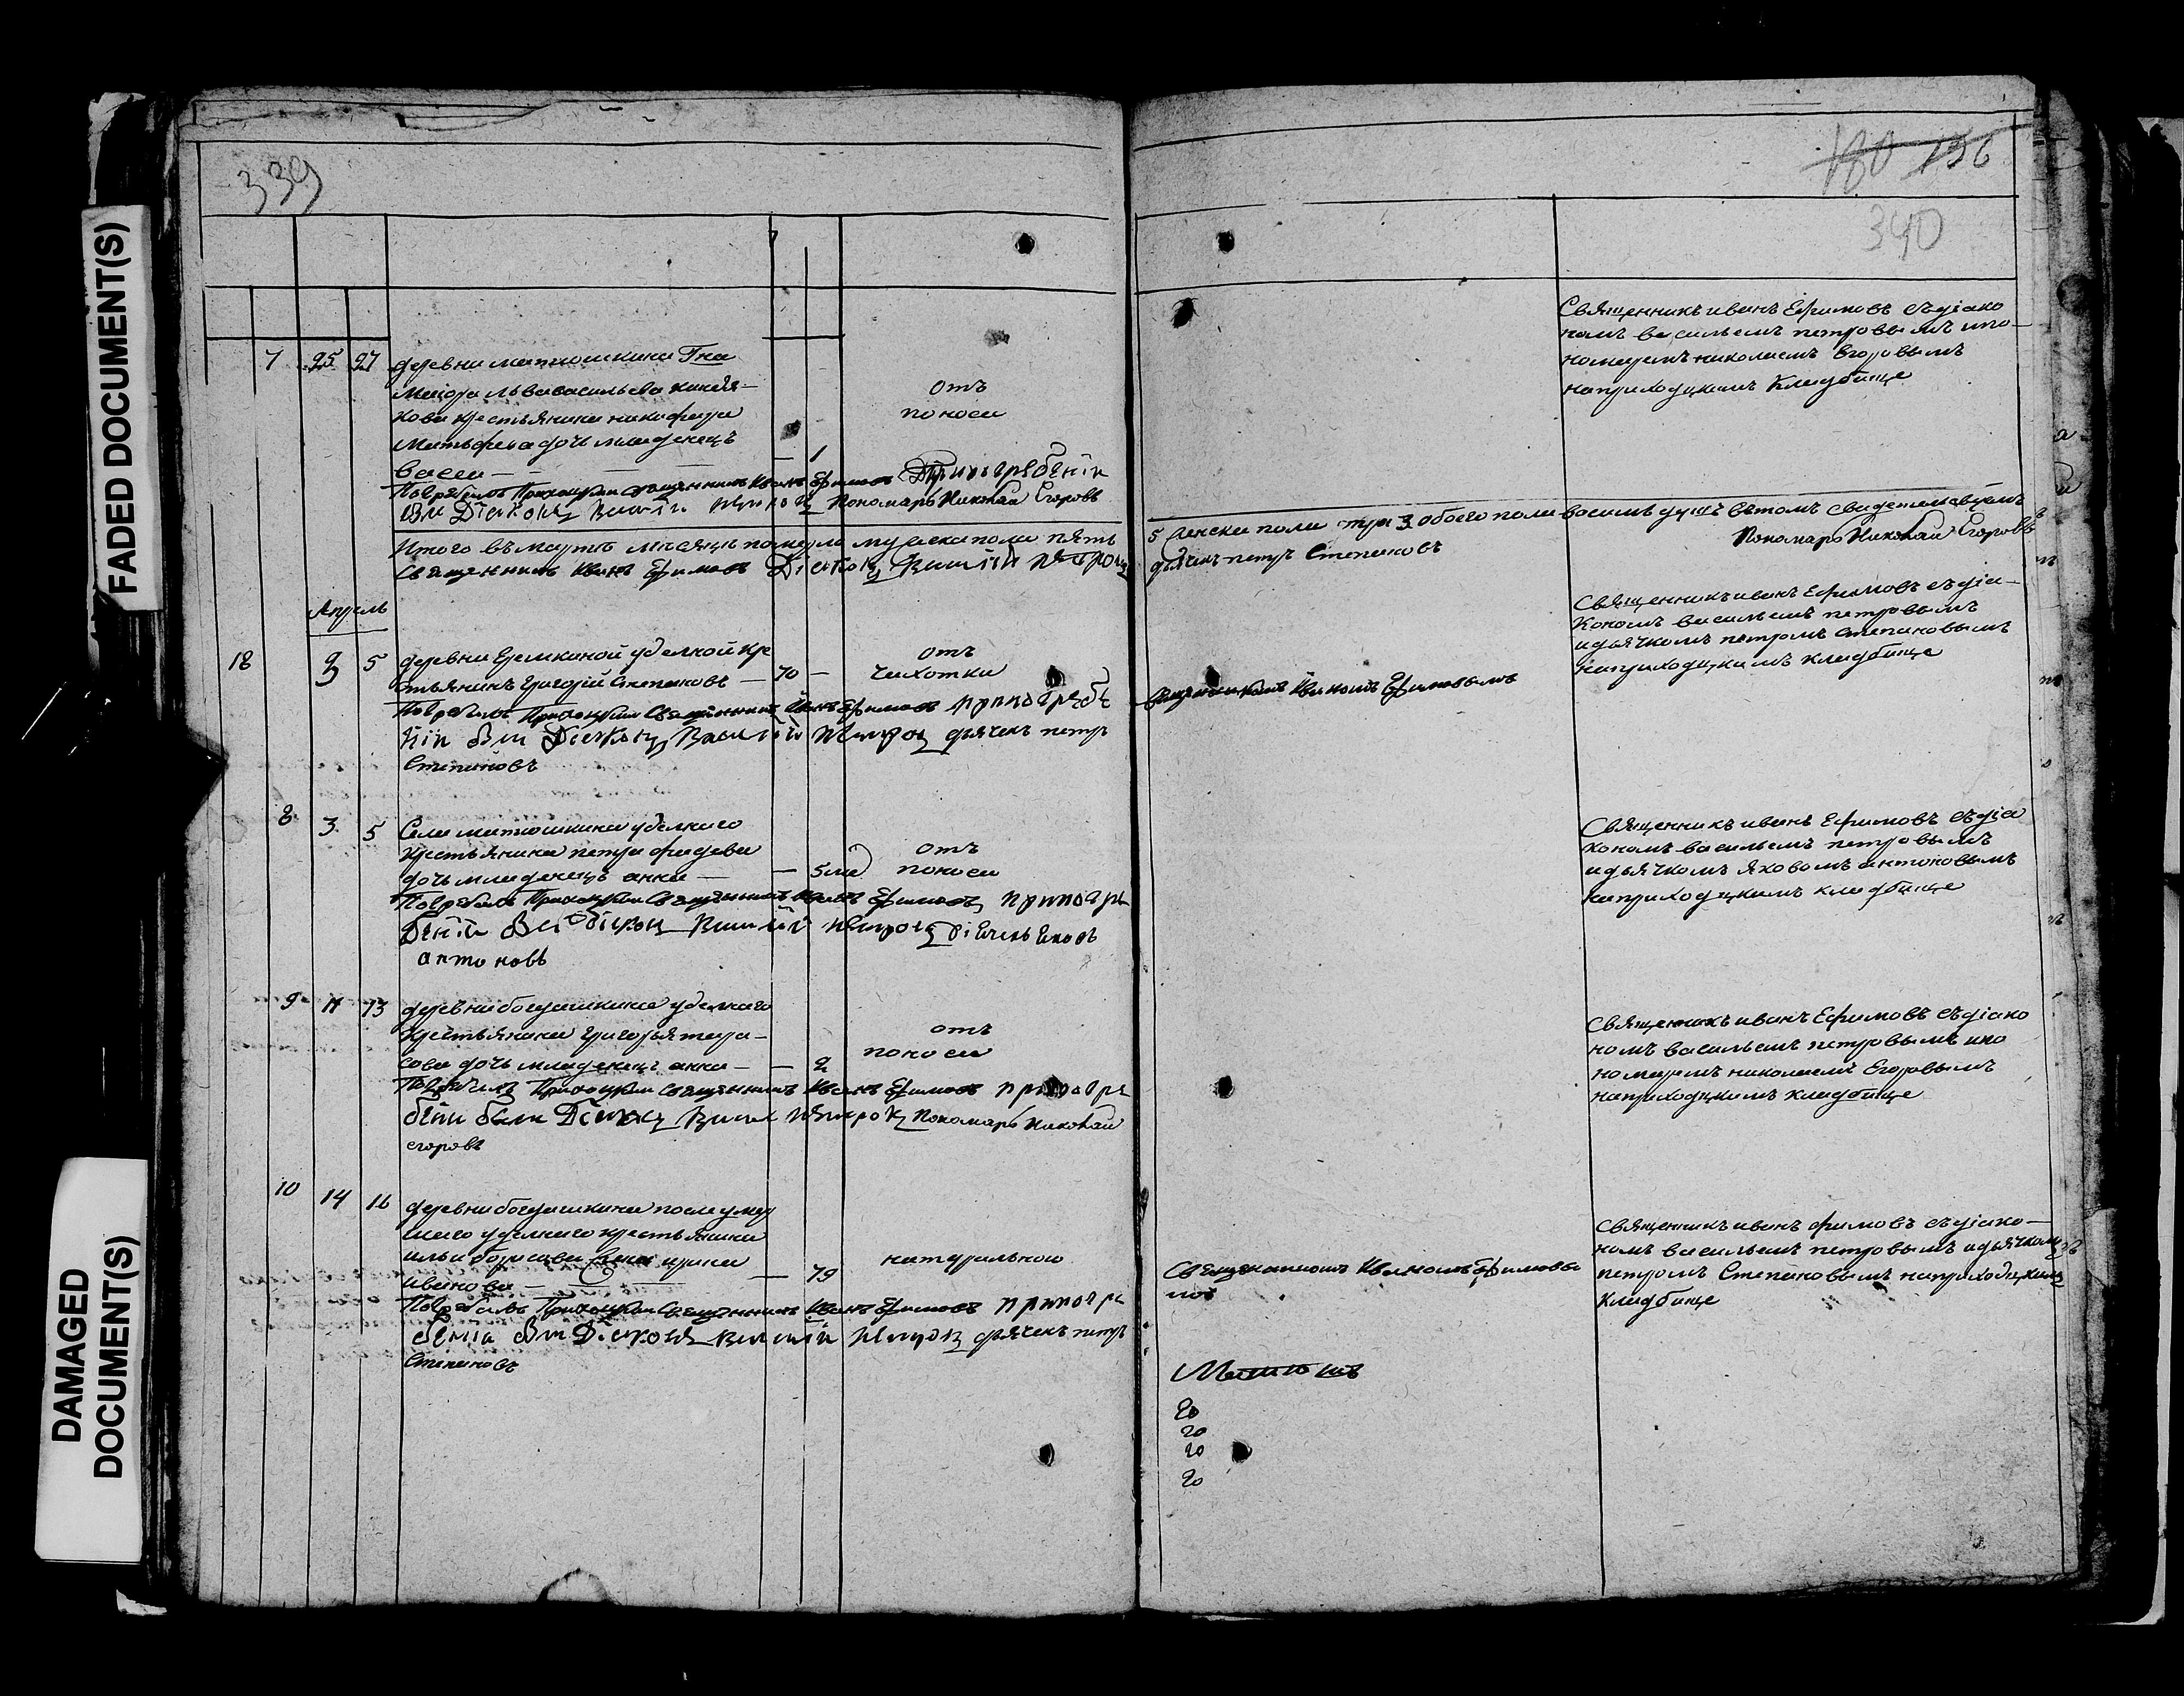 FADED DOCUMENT(S)
DAMAGED
DOCUMENT(S)
339
7 25 27 деревни матюшкина Гна
Маіора Льва васильева
кова крестьянина никифора
Матвѣева дочь младенецъ
Васса — — 1
отъ
поноса
Погребалъ Приходскии священникъ Иванъ Ефимовъ При погребеніи
был Діаконъ Василій Петровъ Пономарь Николай Егоровъ
Итого въ мартѣ месяцѣ померло мужеска пола пять
священникъ Иванъ Ефимовъ Діаконъ Василій Петровъ
Апрель
18 3 5 деревни Еремкиной уделной кре
стьянинъ Григорій Степановъ — 70 —
отъ
чахотки
Погребалъ Приходскии Священникъ Иванъ Ефимовъ при погребе
ніи был Діаконъ Василій Петровъ дьячекъ петръ
Степановъ
8 3 5 Села матюшкина уделнаго
крестьянина петра фадеева
дочь младенецъ анна — — 5 ме
отъ
поноса
Погребалъ Приходскии Священникъ Иванъ Ефимовъ при погре
беніи был діаконъ Василій Петровъ дьячекъ Яковъ
антоновъ
9 11 13 деревни богдашкина уделнаго
крестьянина григорья тара-
сова дочь младенецъ анна — — 2
отъ
поноса
Погребалъ Приходскии священникъ Иванъ Ефимовъ при погре
бени были Діаконъ Василий Петровъ Пономарь Николай
егоровъ
10 14 16 деревни богдашкина после умер
шаго уделнаго крестьянина
ильи борисова жена ирина
иванова — — 79
натуралною
Погребалъ Приходскии Священникъ Иванъ Ефимовъ при погре
бениа был Діаконъ Василій Петровъ дьячекъ петръ
Степановъ
180 196
340
Священникъ иванъ Ефимовъ съ діако
номъ васильемъ петровымъ и по-
номаремъ николаемъ Егоровымъ
на приходскомъ кладбище
5 женска пола три 3 обоего пола восемь душъ въ томъ свидетелствуемъ
дьячекъ петръ Степановъ
Пономарь Николай Егоровъ
Священникъ иванъ Ефимовъ съ діа-
кономъ васильемъ петровымъ
и дьячкомъ петромъ степановымъ
на приходскимъ кладбище
Священникомъ Иваномъ Ефимовымъ
Священникъ иванъ Ефимовъ съ діа
кономъ васильемъ петровымъ
и дьячкомъ яковомъ антоновымъ
на приходскимъ кладбище
Священникъ иванъ Ефимовъ съ діако
номъ васильемъ петровымъ и по
номаремъ николаемъ Егоровымъ
на приходскимъ кладбище
Священникъ иванъ фимовъ съ діако-
номъ васильемъ петровымъ и дьячкомъ
петромъ Степановымъ на приходскимъ
кладбище
Священникомъ Иваномъ Ефимовы
мъ
20
20
20
20